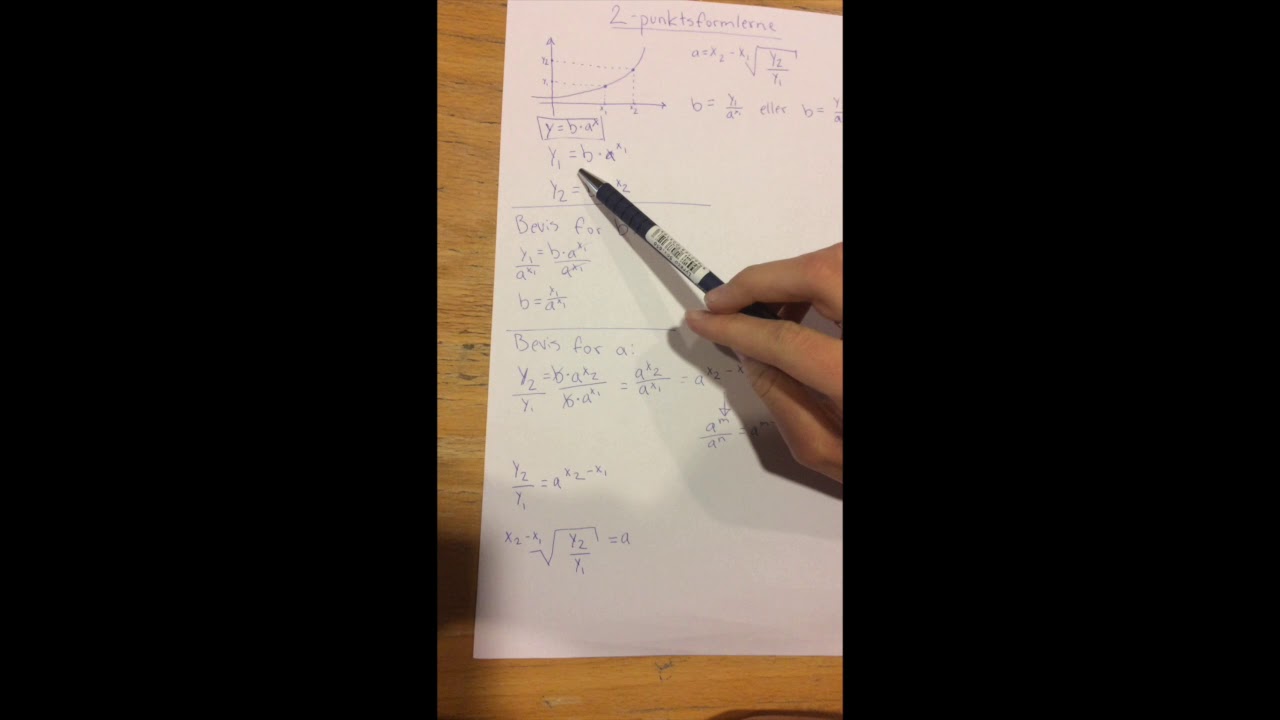 2-punktsformlerne
a = x₂-x₁√(y₂/y₁)
b = y₁/a^x₁ eller b =
y₂
y₁
x₁ x₂
y = b·a^x
y₁ = b·a^x₁
y₂ = x₂
Bevis for b
y₁/a^x₁ = b·a^x₁/a^x₁
b = x₁/a^x₁
Bevis for a:
y₂/y₁ = b·a^x₂/b·a^x₁ = a^x₂/a^x₁ = a^x₂-x
a^m/a^n = a^m
y₂/y₁ = a^x₂-x₁
x₂-x₁√(y₂/y₁) = a